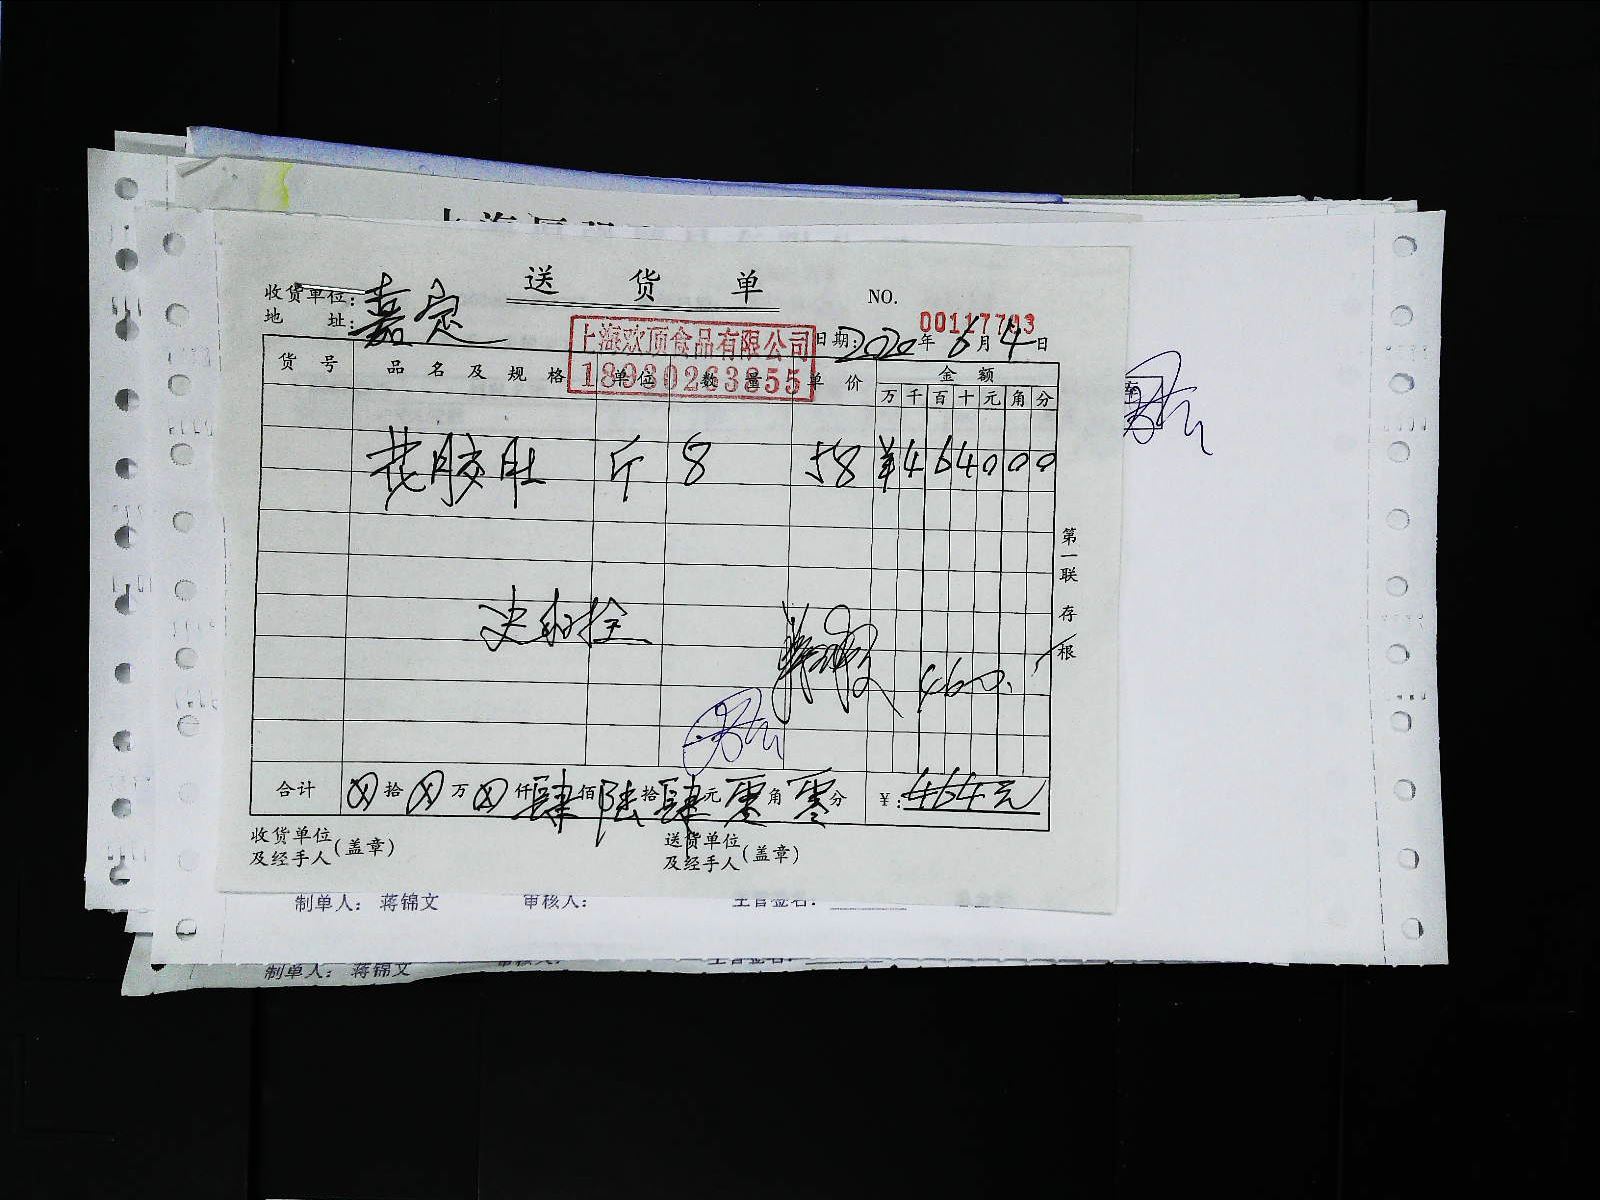 送货单
收货单位：嘉定
地址：
NO. 00117793
日期：2020年6月4日
上海欢顶食品有限公司
18930263855
货号 品名及规格 单位 数量 单价 金额
万千百十元角分
花胶肚 斤 8 58 ¥46400
460.
第一联 存根
合计 ⊗拾⊗万⊗仟肆佰陆拾肆元零角零分 ¥：464元
收货单位及经手人(盖章)
送货单位及经手人(盖章)
制单人： 蒋锦文 审核人： 主管签名：
制单人： 蒋锦文 审核人： 主管签名：